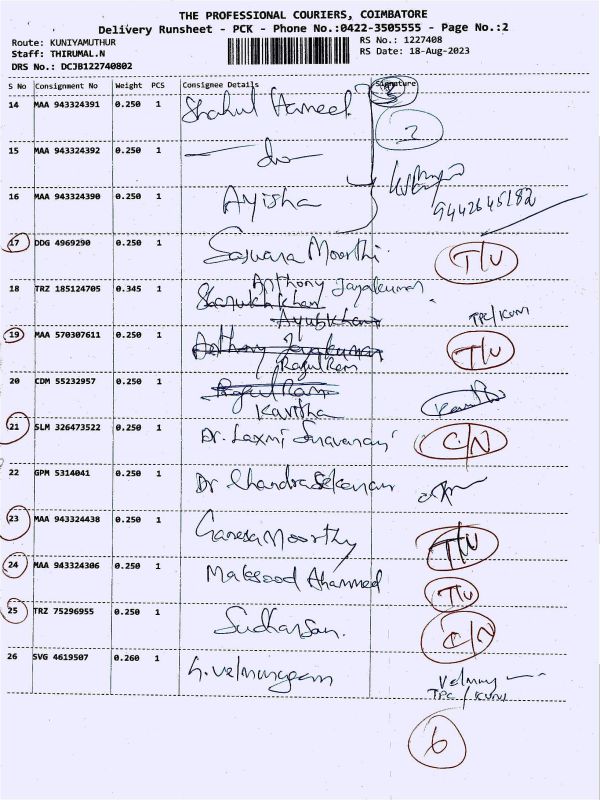 THE PROFESSIONAL COURIERS, COIMBATORE
Delivery Runsheet - PCK - Phone No.:0422-3505555 - Page No.:2
Route: KUNIYAMUTHUR RS No.: 1227408
Staff: THIRUMAL.N RS Date: 18-Aug-2023
DRS No.: DCJB122740802
S No Consignment No Weight PCS Consignee Details Signature
14 MAA 943324391 0.250 1 Shahul Hameed
2
15 MAA 943324392 0.250 1 — do
16 MAA 943324390 0.250 1 Ayisha
9442645182
17 DDG 4969290 0.250 1 Saswara Moorthi T/U
18 TRZ 185124705 0.345 1 Anthony Jayakumar
Sharukh khan
Ayubkhan TPC/KUM
19 MAA 570307611 0.250 1 Anthony Jayakumar T/U
Ragul Ram
20 CDM 55232957 0.250 1 Ragul Ram
Kavitha
21 SLM 326473522 0.250 1 Dr. Laxmi C/N
22 GPM 5314041 0.250 1 Dr Chandrasekaran
23 MAA 943324438 0.250 1 Ganesa Moorthy T/U
24 MAA 943324306 0.250 1 Maksood Ahammed T/U
25 TRZ 75296955 0.250 1 Sudharsan. C/N
26 SVG 4619507 0.260 1 G. Velmurugan
TPC / KUM
6